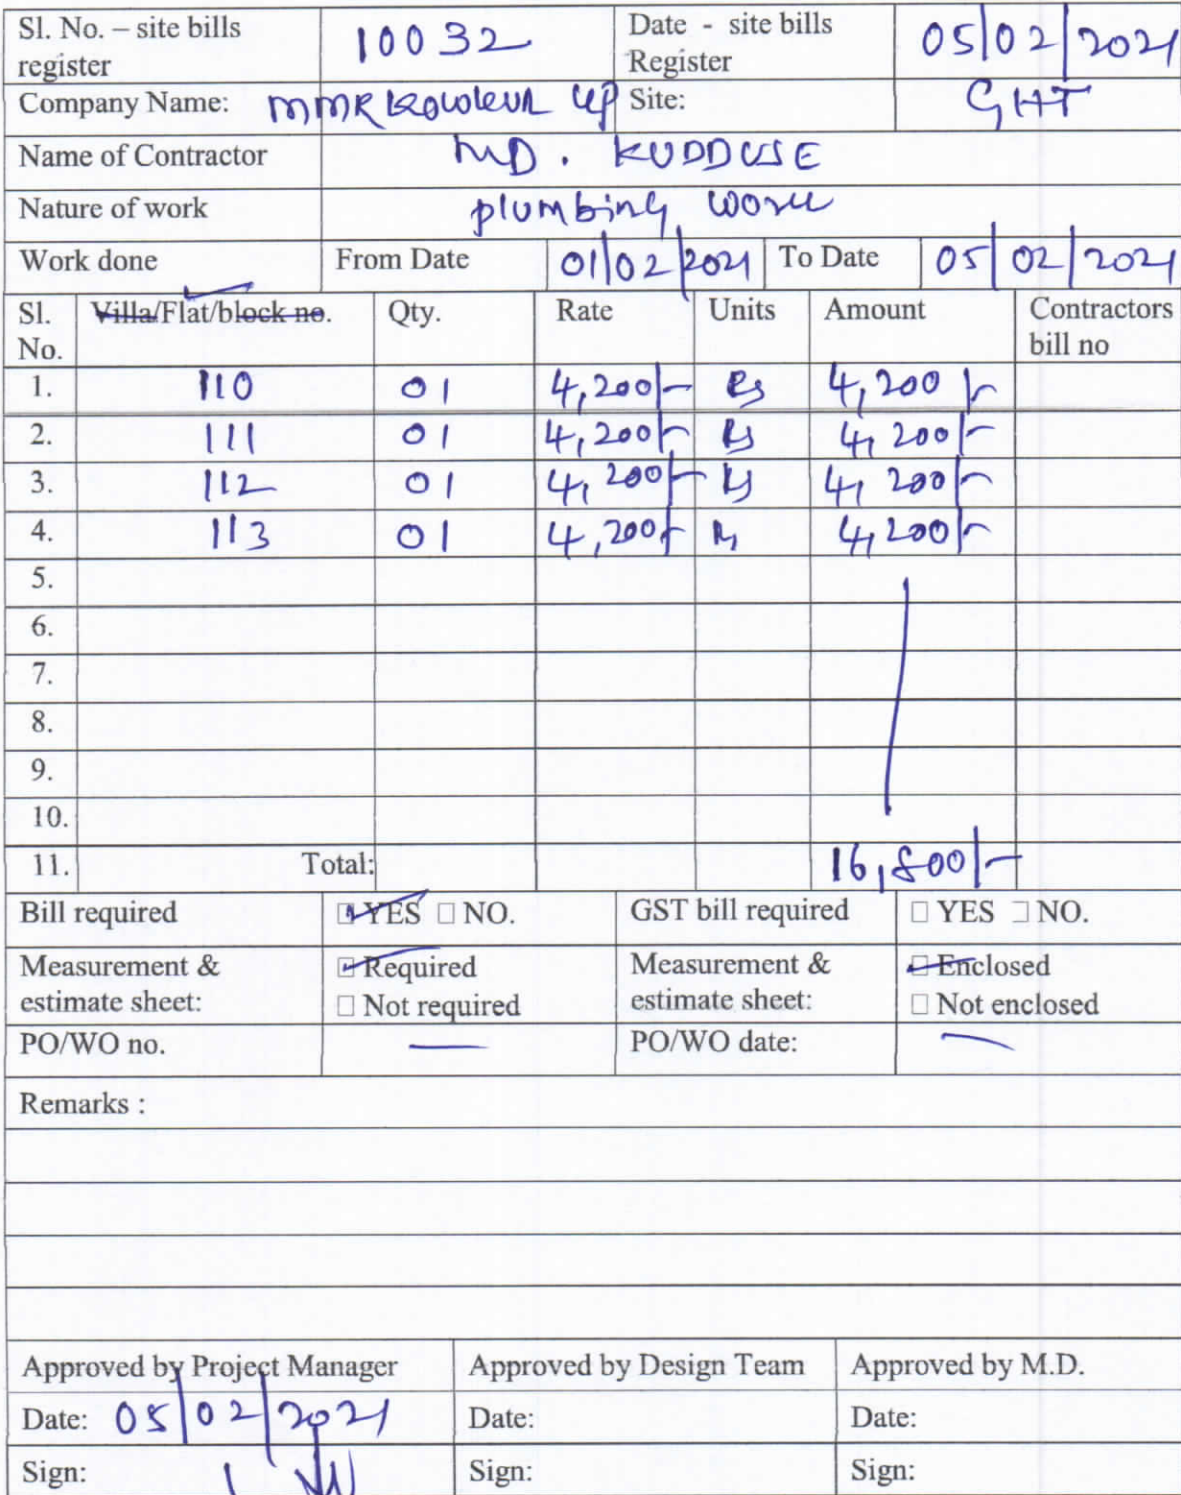 Sl. No. – site bills register 10032 Date - site bills Register 05/02/2021
Company Name: MMR Site: GHT
Name of Contractor MD. KUDDUSE
Nature of work plumbing work
Work done From Date 01/02/2021 To Date 05/02/2021
Sl. No. Villa/Flat/block no. Qty. Rate Units Amount Contractors bill no
1. 110 01 4,200/- Rs 4,200/-
2. 111 01 4,200/- Rs 4,200/-
3. 112 01 4,200/- Rs 4,200/-
4. 113 01 4,200/- Rs 4,200/-
5.
6.
7.
8.
9.
10.
11. Total: 16,800/-
Bill required YES NO. GST bill required YES NO.
Measurement & estimate sheet: Required Not required Measurement & estimate sheet: Enclosed Not enclosed
PO/WO no. — PO/WO date: —
Remarks :
Approved by Project Manager Approved by Design Team Approved by M.D.
Date: 05/02/2021 Date: Date:
Sign: Sign: Sign: